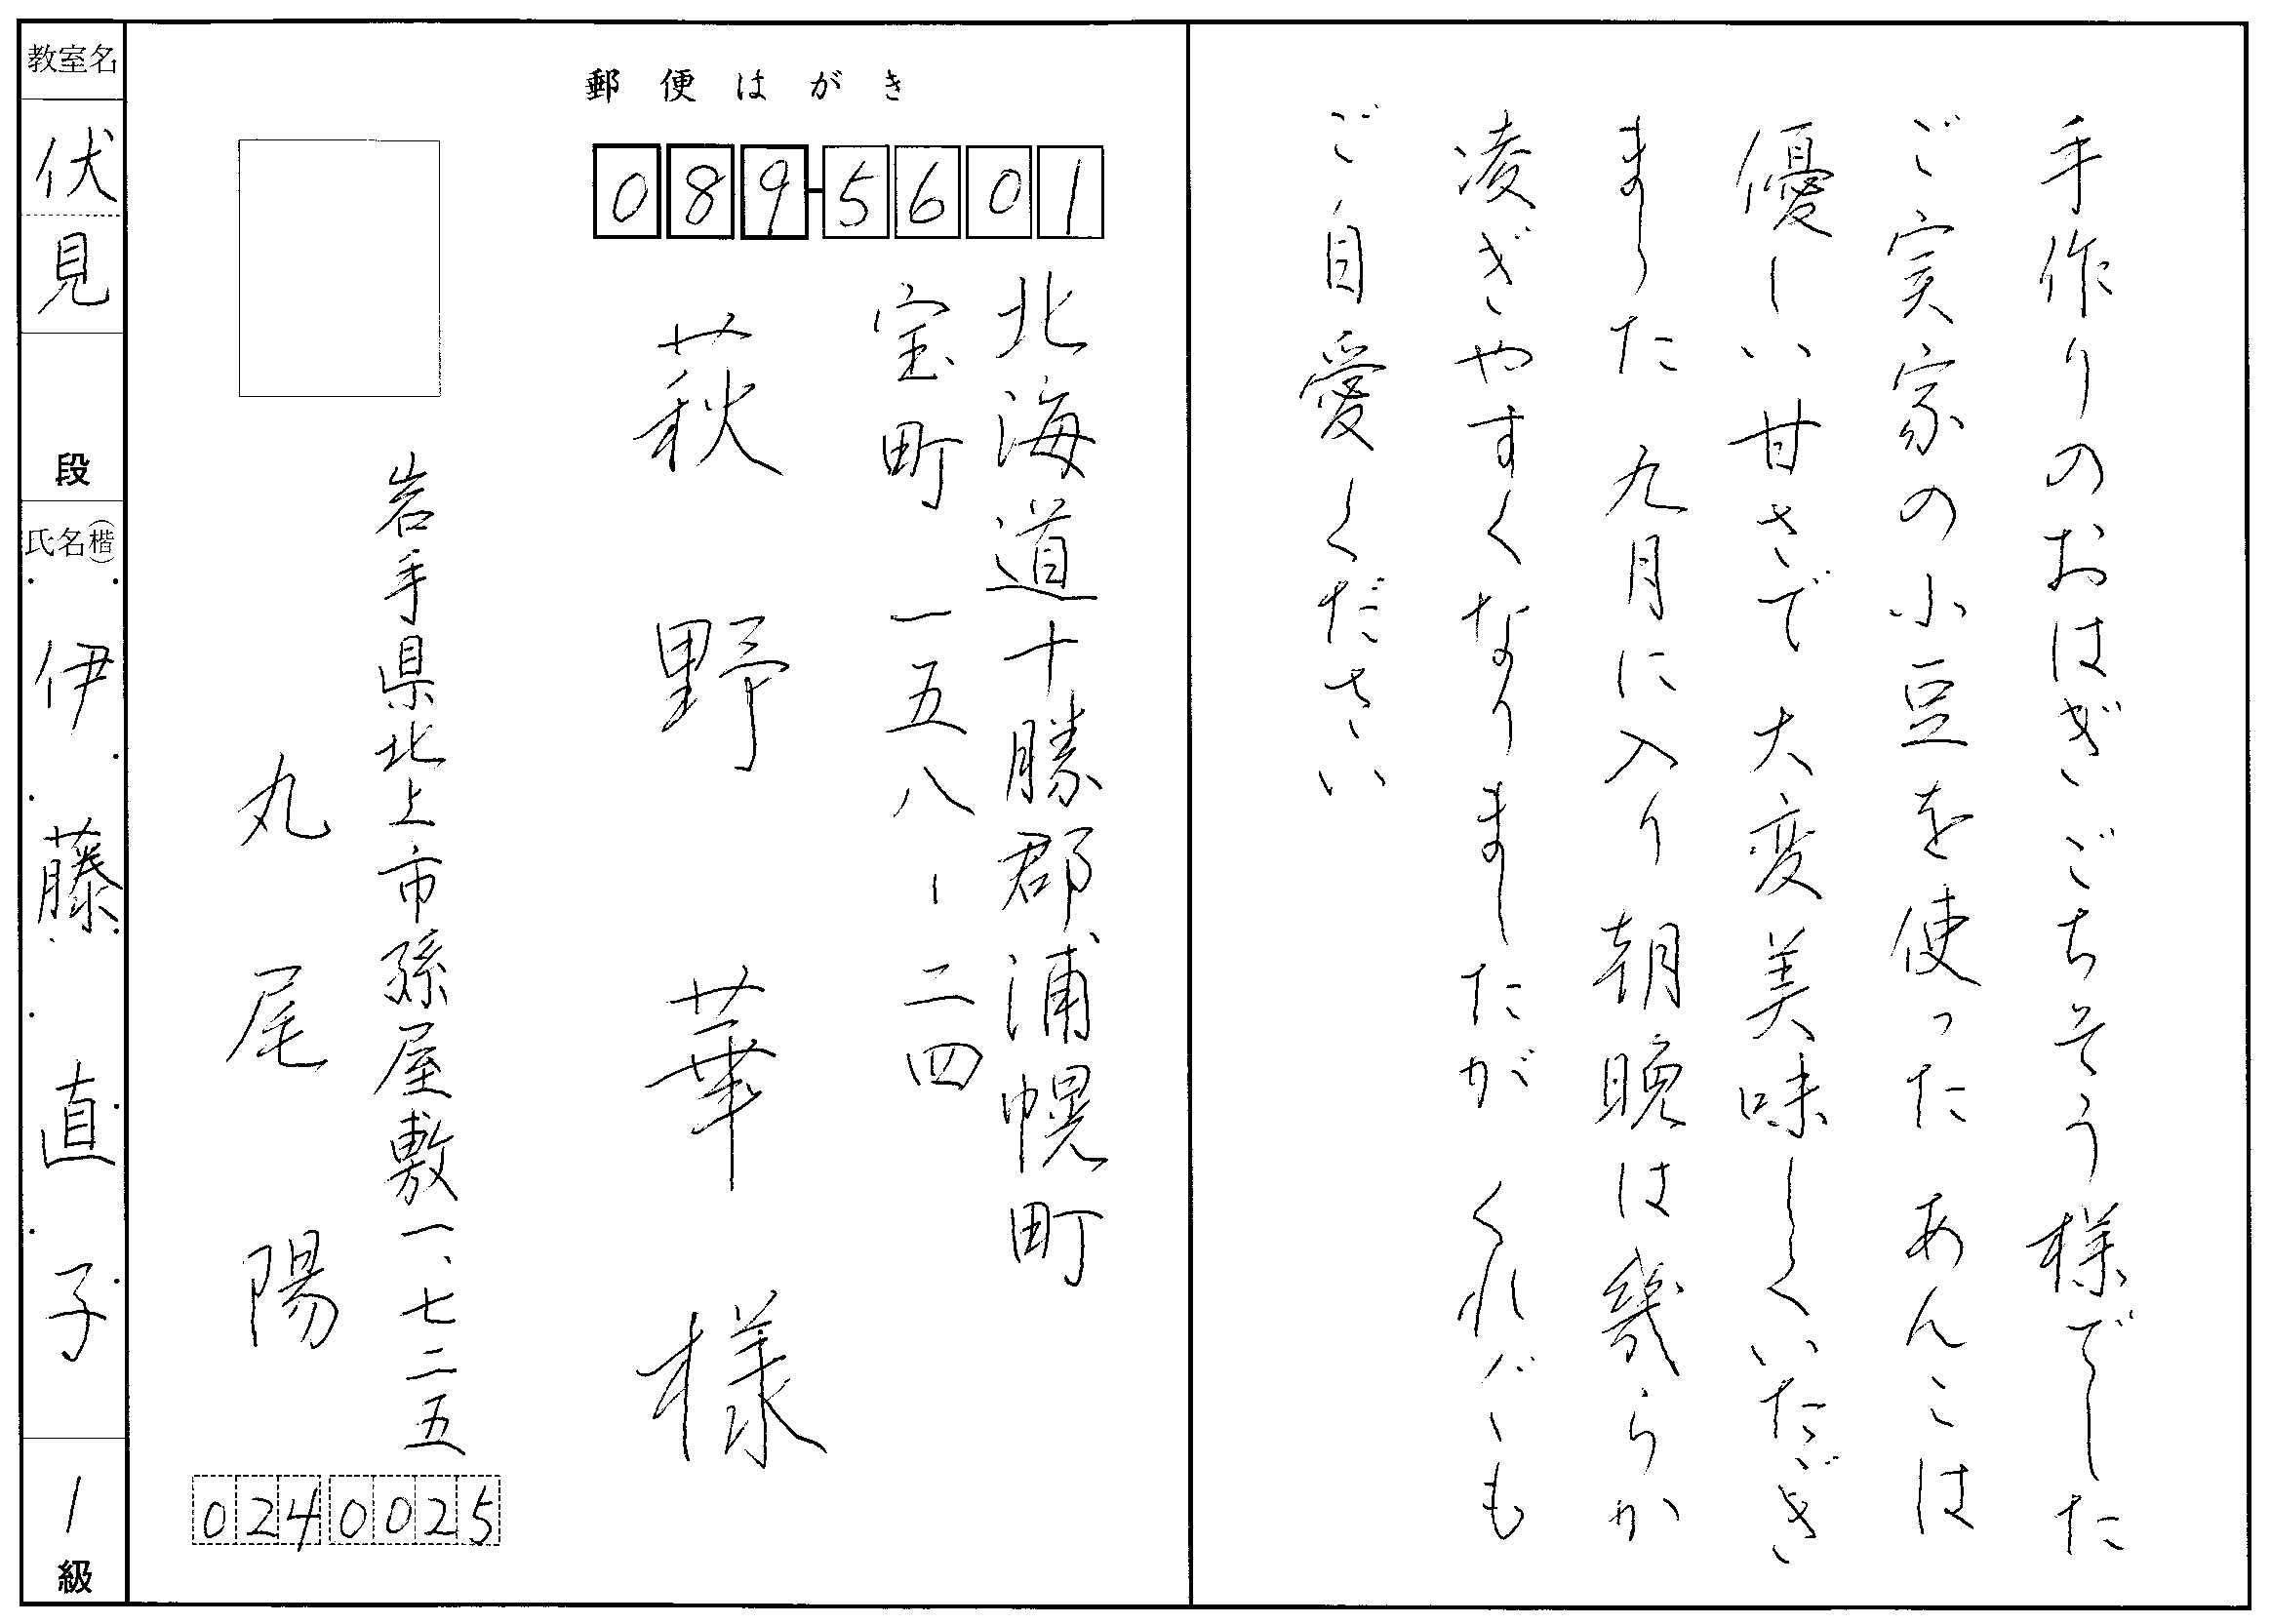 手作りのおはぎ ごちそう様でした
ご実家の小豆を使った あんこは
優しい甘さで 大変美味しくいただき
ました 九月に入り 朝晩は幾らか
凌ぎやすくなりましたが くれぐれも
ご自愛ください
郵便はがき
089-5601
北海道十勝郡浦幌町
宝町 一五八-二四
萩野 華様
岩手県北上市孫屋敷一、七二五
丸尾 陽
024 0025
教室名
伏見
段
氏名(楷)
伊藤直子
1級